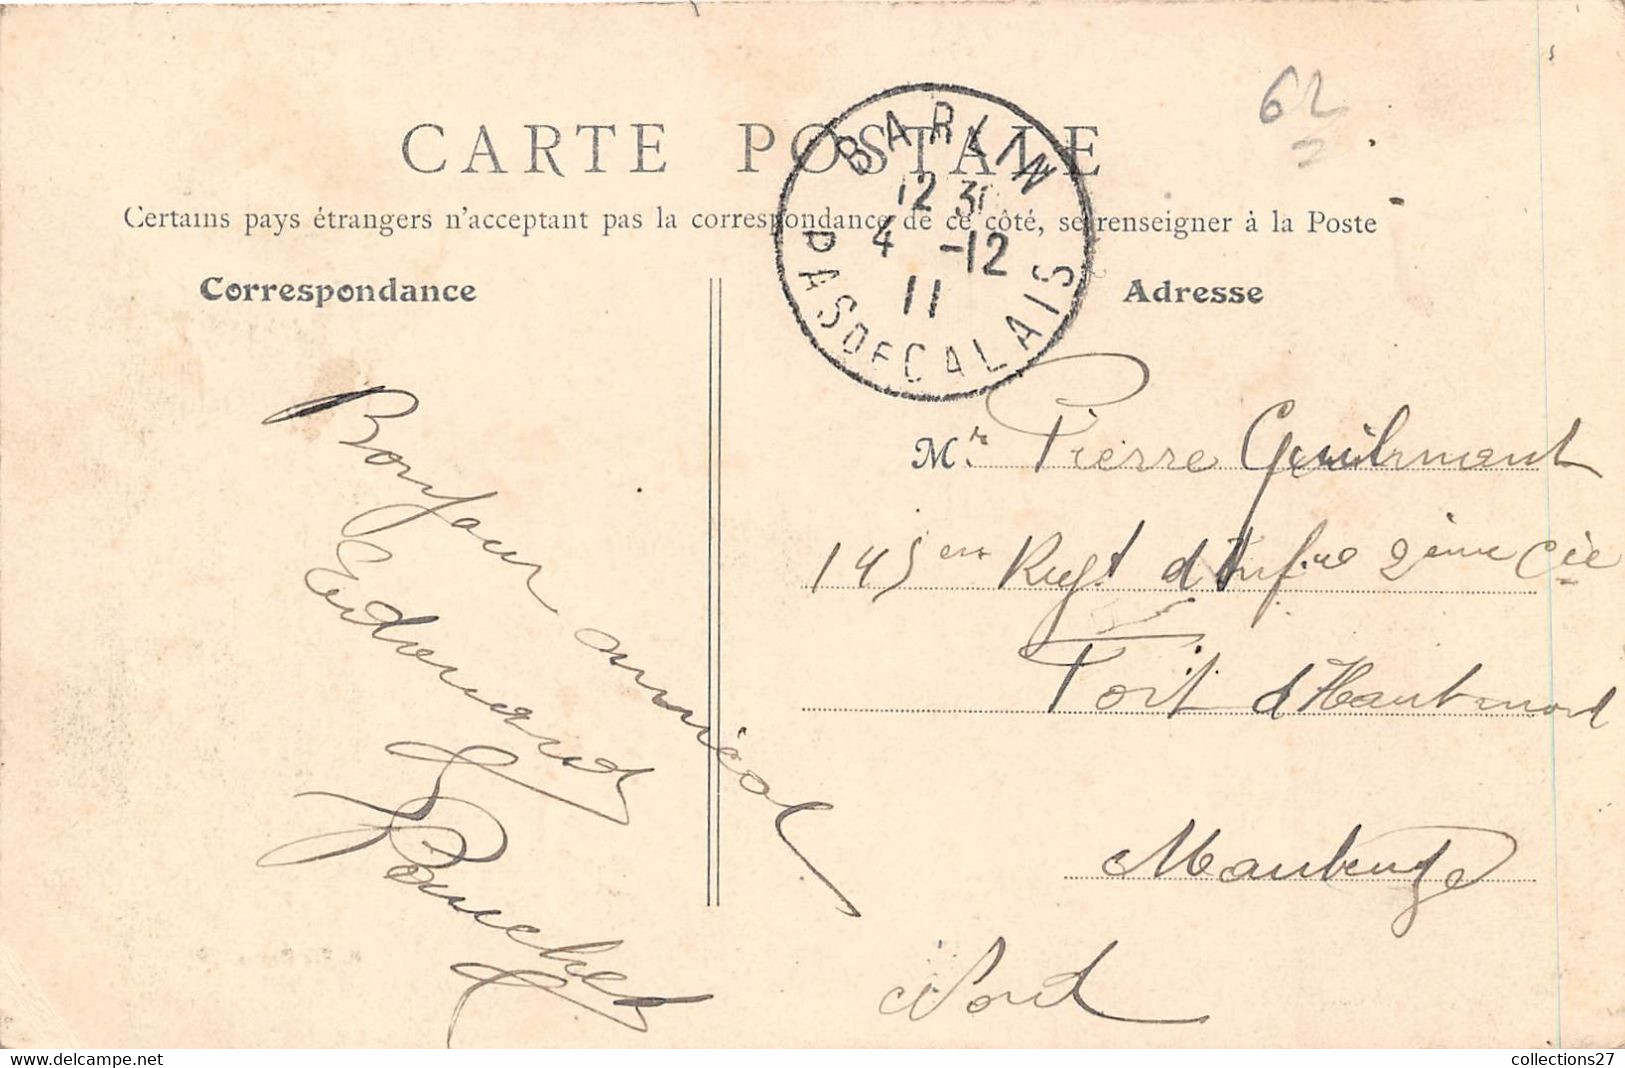 62
CARTE POSTALE
Certains pays étrangers n'acceptent pas la correspondance de ce côté, se renseigner à la Poste
BARLIN
12 31
4 -12
11
PAS DE CALAIS
Correspondance
Bonjour amical
Edouard
Pouchet
Adresse
Mr. Pierre Guilmant
145em Regt d'Infrie 2ème Cie
Fort d'Hautmont
Maubeuge
Nord
collections27